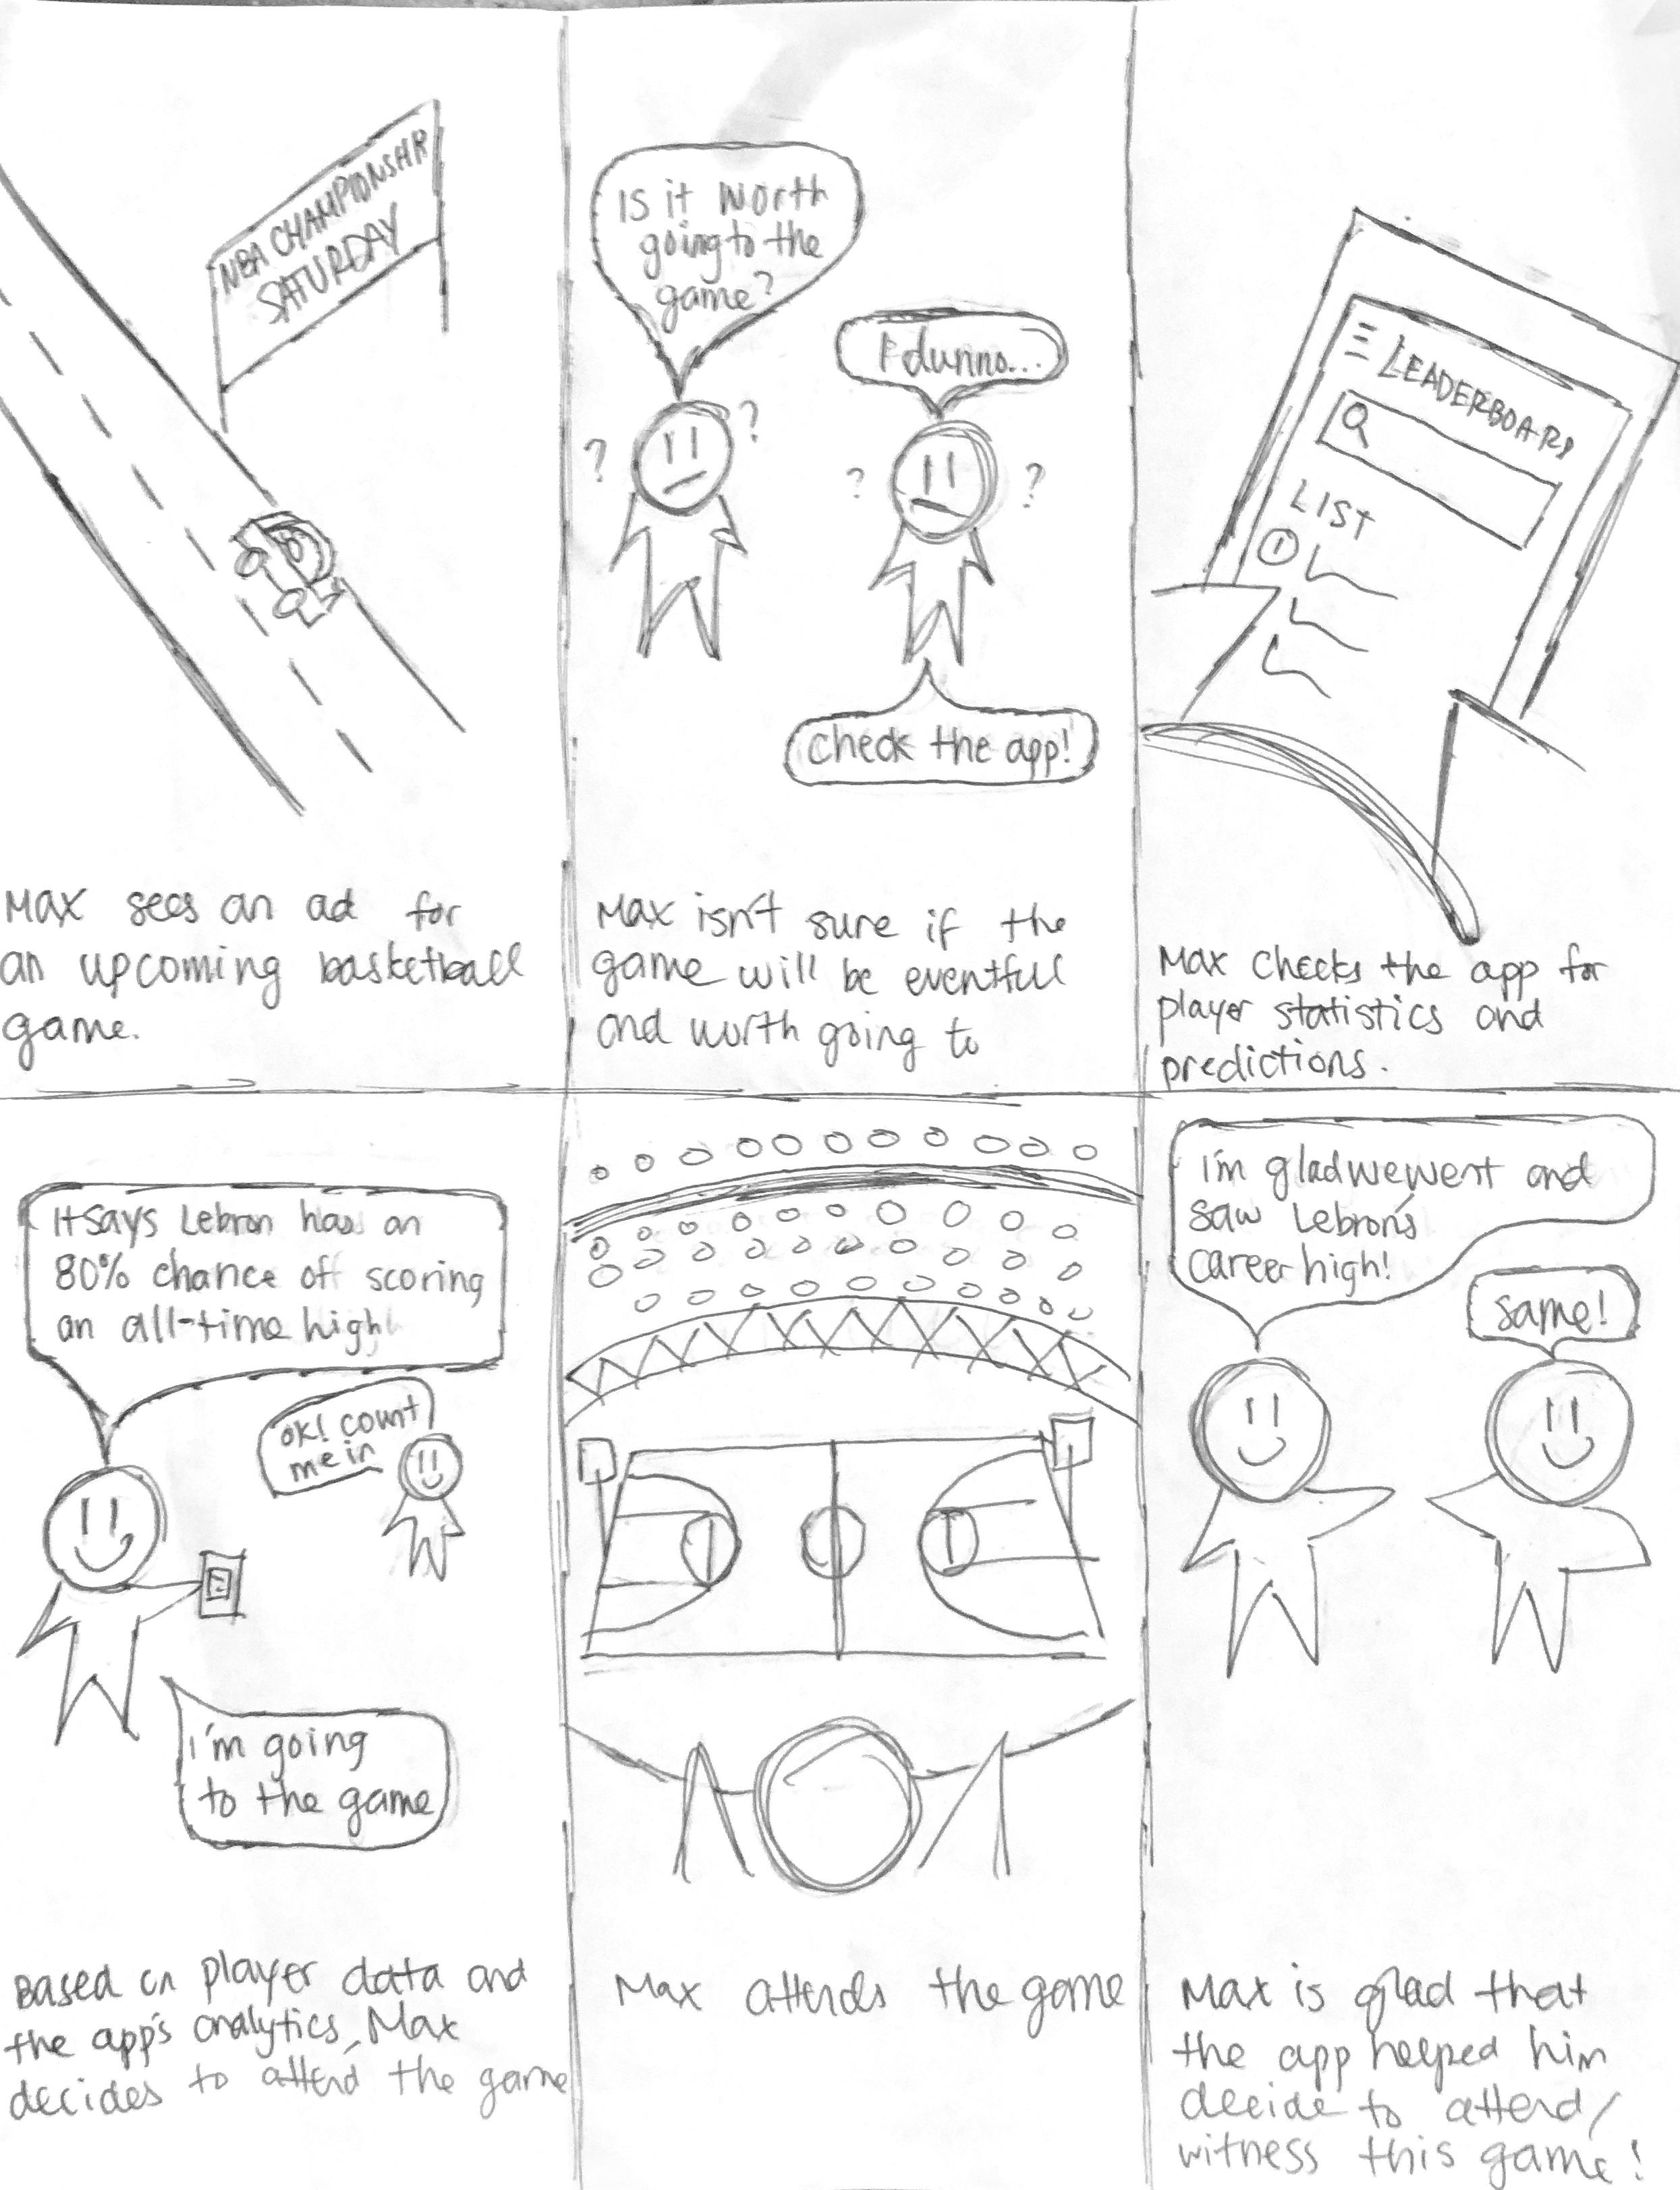 NBA CHAMPIONSHIP
SATURDAY
Max sees an ad for
an upcoming basketball
game.
Is it worth
going to the
game?
?
?
I dunno...
?
?
check the app!
Max isn't sure if the
game will be eventfull
and worth going to
LEADERBOARD
LIST
1
Max checks the app for
player statistics and
predictions.
It says Lebron has an
80% chance of scoring
an all-time high
ok! count
me in
I'm going
to the game
Based on player data and
the app's analytics, Max
decides to attend the game
Max attends the game
I'm glad we went and
saw Lebron's
career high!
same!
Max is glad that
the app helped him
decide to attend/
witness this game!